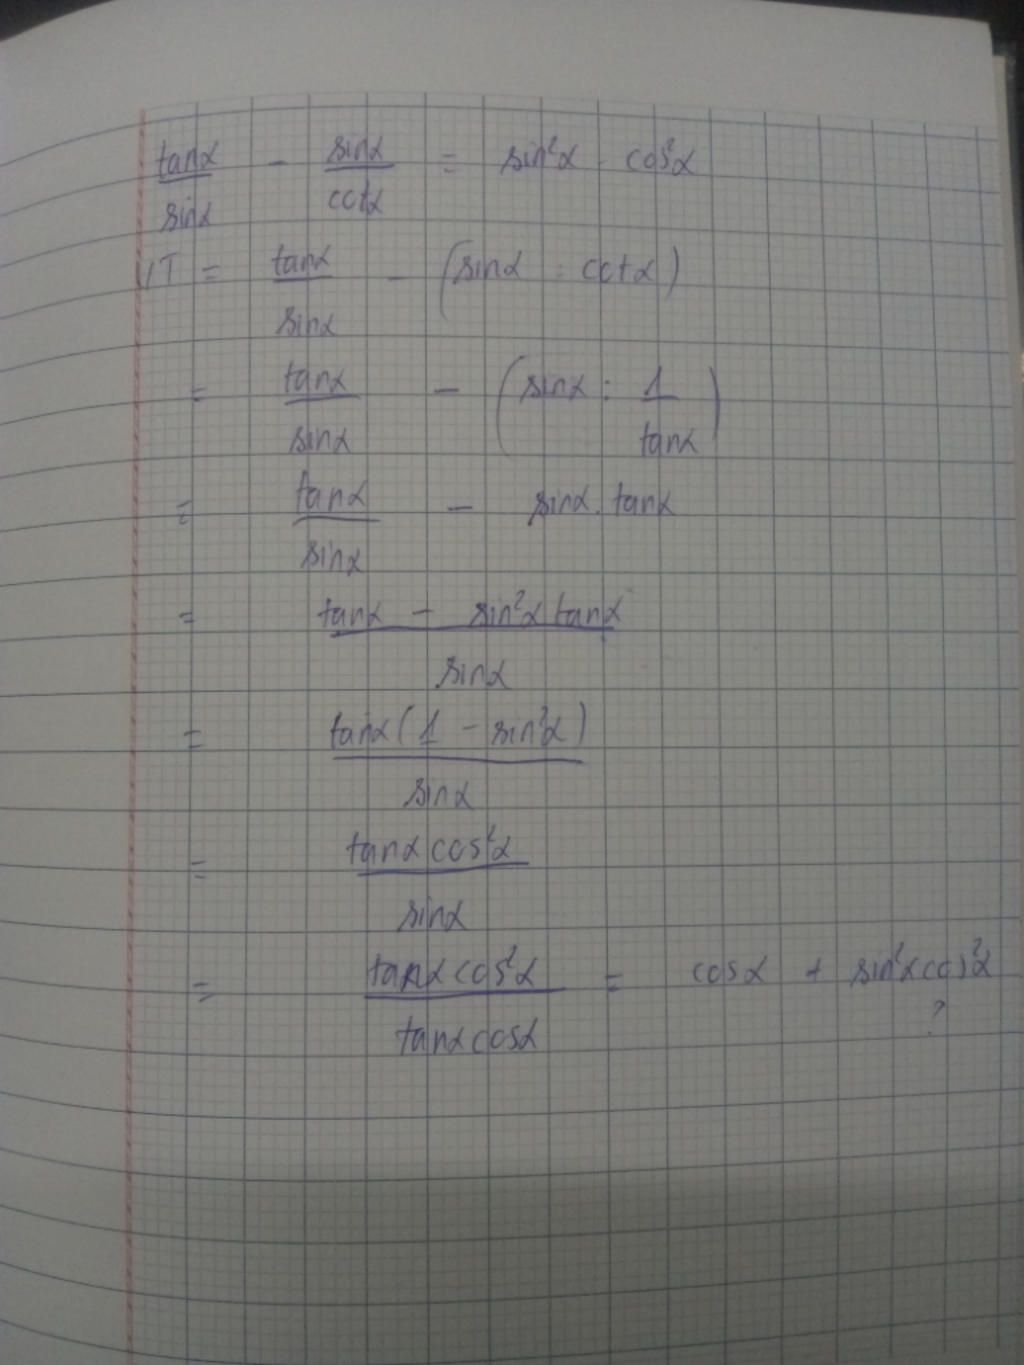 tanα/sinα - sinα/cotα = sin²α . cos²α
VT = tanα/sinα - (sinα : cotα)
= tanα/sinα - (sinα : 1/tanα)
= tanα/sinα - sinα.tanα
= (tanα - sin²α tanα)/sinα
= tanα(1 - sin²α)/sinα
= tanα cos²α/sinα
= tanα cos²α/tanα cosα = cosα + sin²α cos²α
?